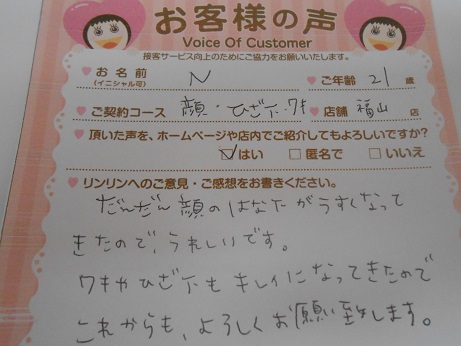 お客様の声
Voice Of Customer
接客サービス向上のためにご協力をお願いいたします。
お名前 (イニシャル可) N ご年齢 21 歳
ご契約コース 顔・ひざ下・ワキ 店舗 福山 店
頂いた声を、ホームページや店内でご紹介してもよろしいですか?
はい 匿名で いいえ
リンリンへのご意見・ご感想をお書きください。
だんだん顔のはなたがうすくなって
きたので、うれしいです。
ワキやひざ下もキレイになってきたので
これからも、よろしくお願い致します。